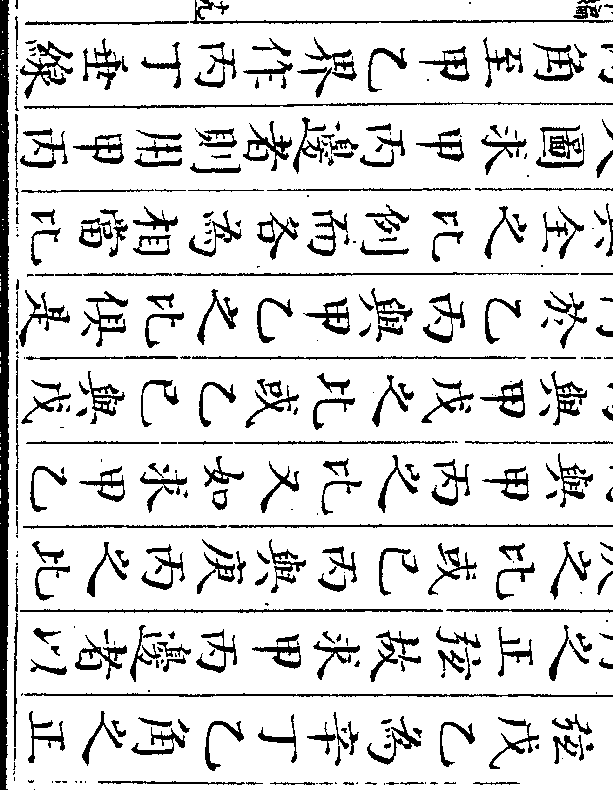 弦戊乙為辛丁乙角之正
之正弦故求甲丙邊者以
之比或己丙與庚丙之比
與甲丙之比又如求甲乙
與甲戊之比或乙己與戊
於乙丙與甲乙之比俱是
全之比例而各為相當比
圖求甲丙邊者則用甲丙
角至甲乙界作丙丁垂線